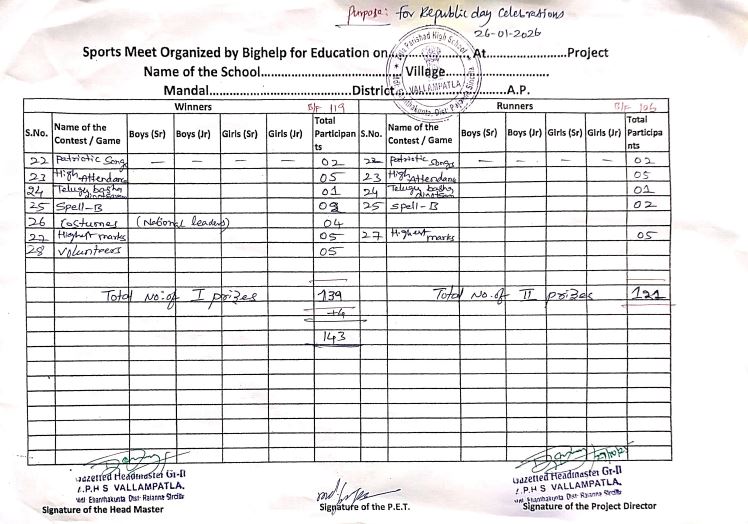 Purpose: for Republic day Celebrations
26-01-2026
Sports Meet Organized by Bighelp for Education on............At....................Project
Name of the School.................................. Village..........................
Mandal..............................District............................A.P.
Zilla Parishad High School
VALLAMPATLA
Winners B/F 119 Runners B/F 106
S.No. Name of the Contest / Game Boys (Sr) Boys (Jr) Girls (Sr) Girls (Jr) Total Participan ts S.No. Name of the Contest / Game Boys (Sr) Boys (Jr) Girls (Sr) Girls (Jr) Total Participa nts
22 Patriotic Songs — — — — 02 22 Patriotic Songs — — — — 02
23 High Attendance 05 23 High Attendance 05
24 Telugu basha 01 24 Telugu basha 01
25 Spell-B 25 Spell-B 02
26 Costumes (National leaders) 04
27 Highest marks 05 27 Highest marks 05
28 Volunteers 05
Total No: of I prizes 139 Total No. of II prizes 121
+4
143
Gazetted Headmaster Gr-II Gazetted Headmaster Gr-II
Z.P.H S VALLAMPATLA. Z.P.H S VALLAMPATLA.
Md Ellanthakunta Dist- Rajanna Sircilla Md Ellanthakunta Dist- Rajanna Sircilla
Signature of the Head Master Signature of the P.E.T. Signature of the Project Director